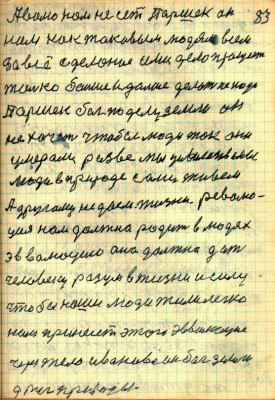 83
А вано нам несет Паршек он
нам как таковым людям всем
За всё сделаное ими дело
только большие дела
Паршек бог поделу земли он
не хочет чтобы люди так они
умерали разве мы
люди в природе сами живем
А другому не даем жизни. револю-
ция нам должна родит в людях
эвволюцию она должна дат
человеку разум в жизни и силу
чтобы наши люди жили легко
нам принесет этого эвволюцие
через тело иванова он бог земли
друг природы.